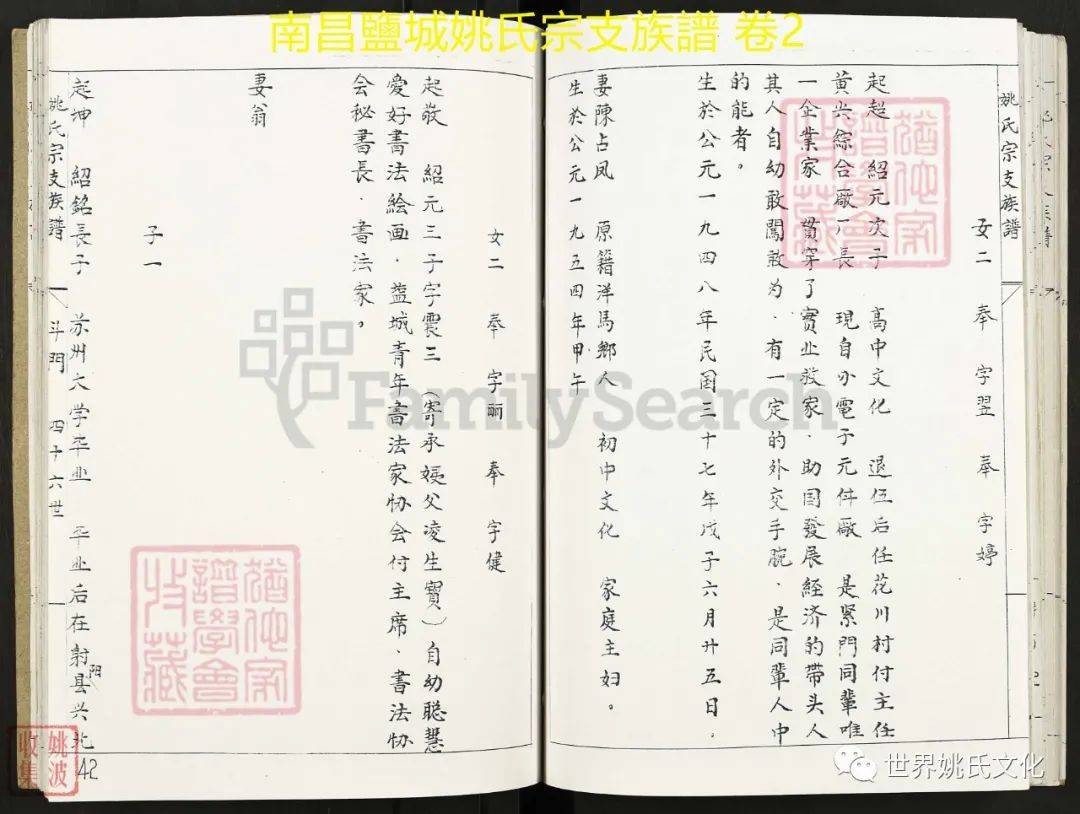 南昌鹽城姚氏宗支族譜 卷2
姚氏宗支族譜
女二 奉字翌 奉字婷
起超 紹元次子 高中文化 退伍后任花川村付主任
黄尖綜合廠厂長 現自办電子元件廠 是緊門同輩唯
一企業家 貫穿了實业救家．助国發展經济的带头人
其人自幼敢闖敢为．有一定的外交手腕．是同輩人中
的能者。
生於公元一九四八年民国三十七年戊子六月廿五日．
妻陳占凤 原籍洋馬鄉人 初中文化 家庭主妇。
生於公元一九五四年甲午
女二 奉字丽 奉字健
起敬 紹元三子字震三（寄承姨父凌生寶）自幼聪慧
爱好書法绘画．盐城青年書法家协会付主席．書法协
会秘書長．書法家。
妻翁
子一
起坤 紹銘長子 苏州大学毕业 毕业后在射阳县兴北
姚氏宗支族譜 斗門 四十六世
42
譜學會
收藏
譜學會
收藏
姚波
收集
FamilySearch
世界姚氏文化